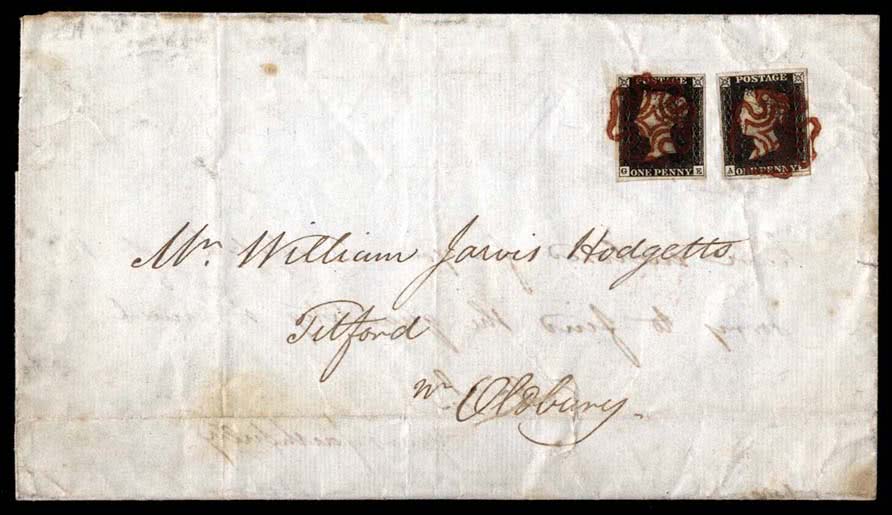 POSTAGE POSTAGE
G ONE PENNY E A ONE PENNY
Mr. William Jarvis Hodgetts
Titford
Nr. Oldbury.
to find the